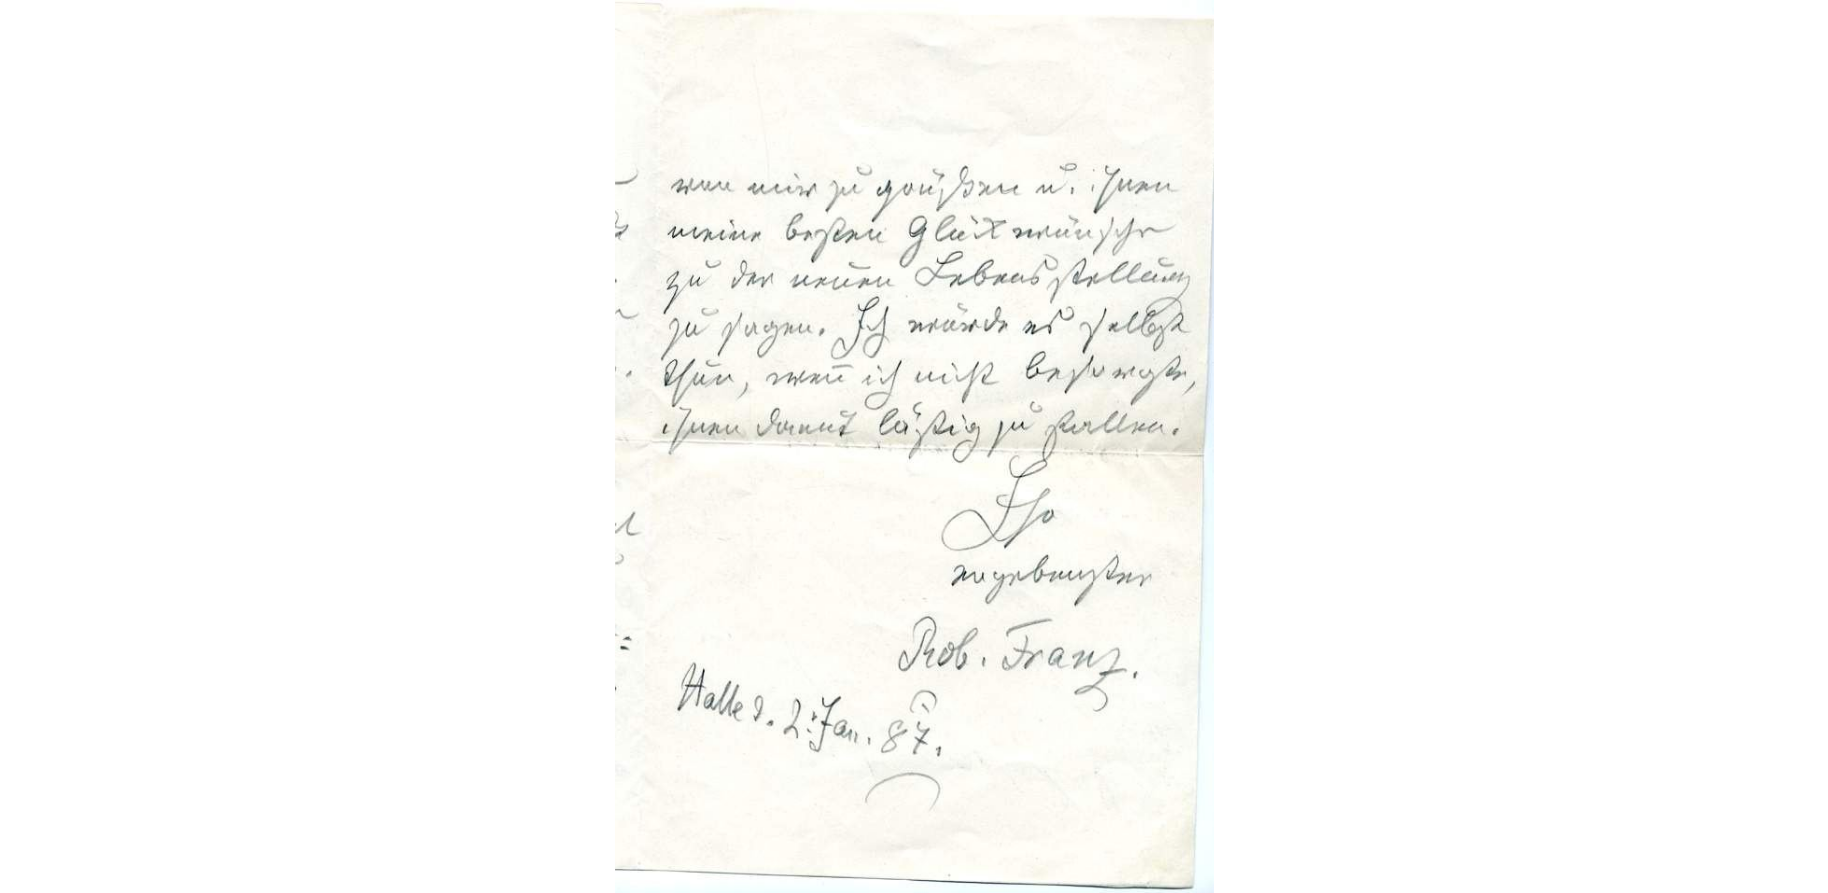 von mir zu grüßen u. ihnen
meine besten Glückwünsche
zu der neuen Lebensstellung
zu sagen. Ich würde es selbst
thun, weñ ich nicht besorgte,
ihnen damit lästig zu fallen.
Ihr
ergebenster
Rob. Franz.
Halle d. 2. Jan. 87.